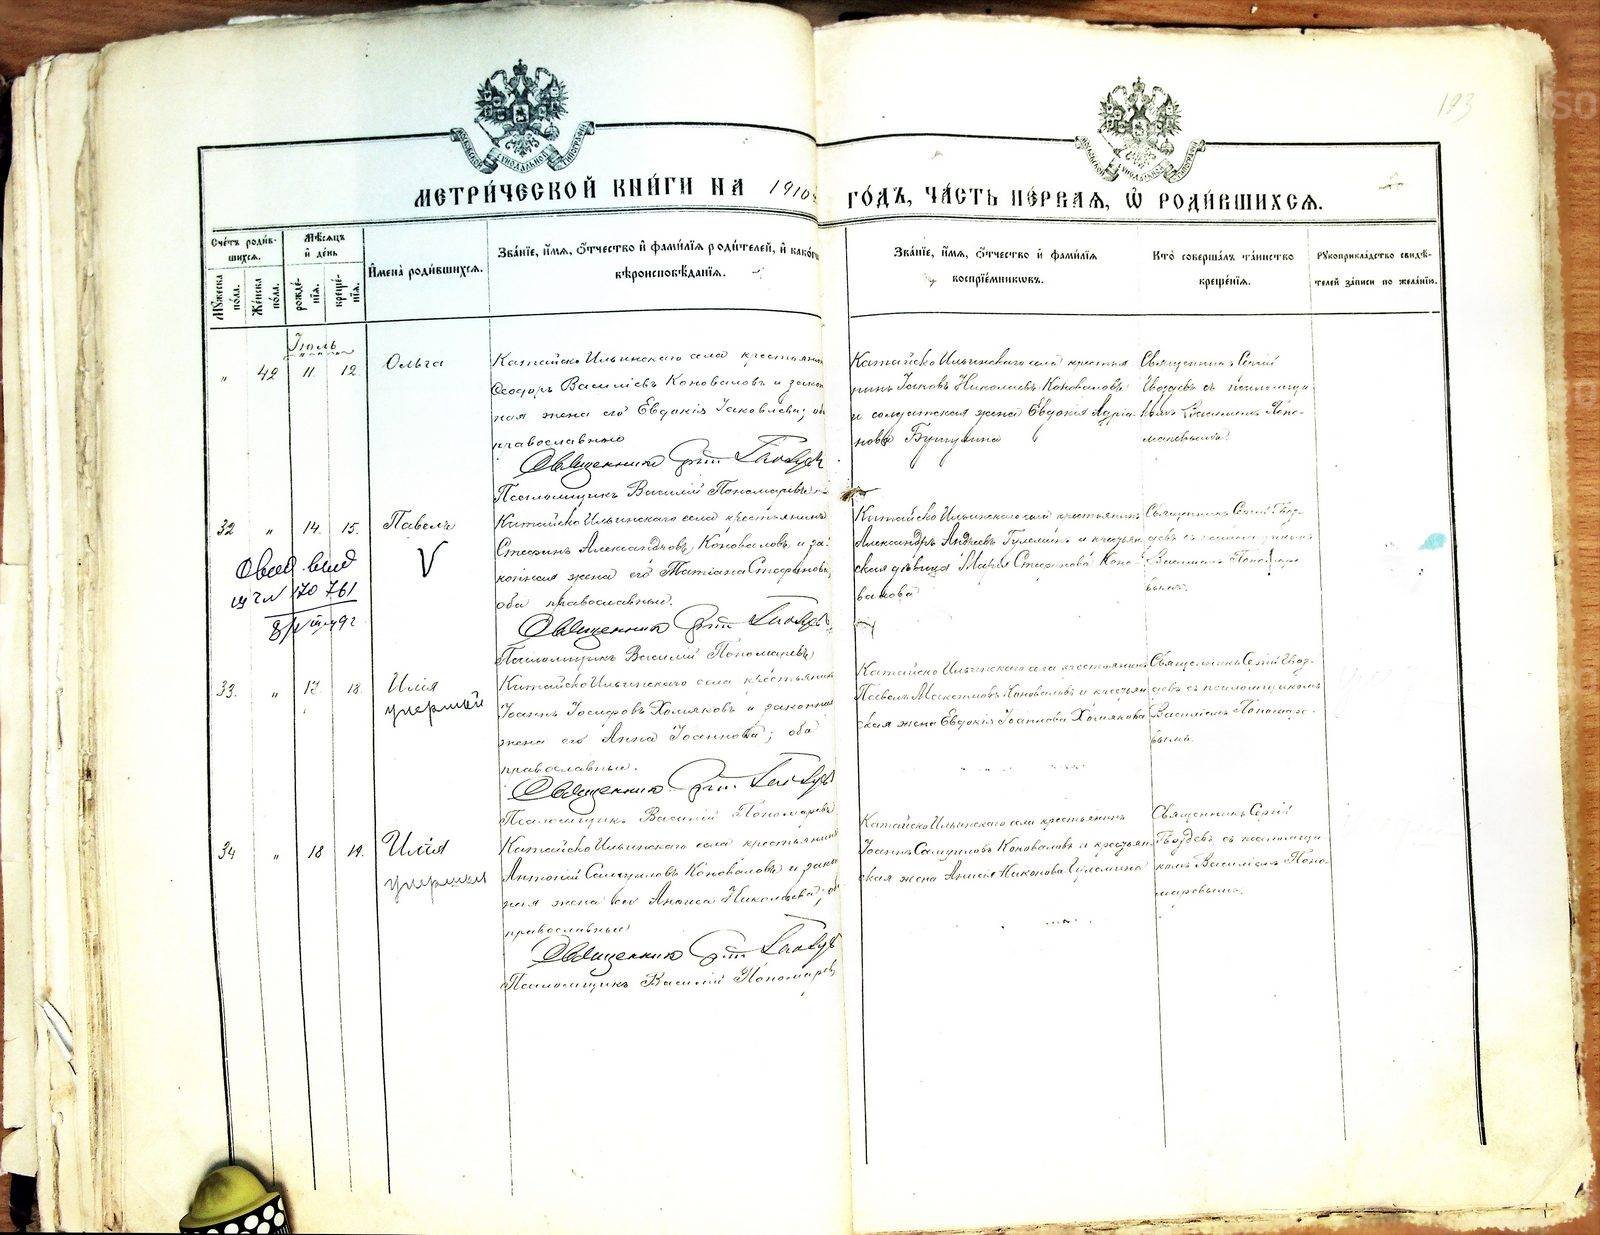 193
МЕТРИ́ЧЕСКОЙ КНИ́ГИ НА 1910 ГО́ДЪ, ЧА́СТЬ ПЕ́РВАЯ, Ѡ҆ РОДИ́ВШИХСЯ.
Сче́тъ роди́вшихся.
Мѣ́сяцъ и҆ де́нь
Мꙋ́жеска по́ла.
Же́нска по́ла.
рожде́нїя.
креще́нїя.
И҆мена̀ роди́вшихся.
Зва́нїе, и҆́мя, ѻ҆́тчество и҆ фами́лїя роди́телей, и҆ како́гѡ
вѣроисповѣ́данїя.
Зва́нїе, и҆́мя, ѻ҆́тчество и҆ фами́лїя
воспрїе́мникѡвъ.
Кто̀ соверша́лъ та́инство
креще́нїя.
Рꙋкоприкла́дство свидѣ́телей за́писи по жела́нїю.
Іюль
" 42 11 12 Ольга
Катайско Ильинскаго села крестьянин
Ѳеодоръ Васильевъ Коноваловъ и закон
ная жена его Евдокія Іаковлева; оба
православные
Священникъ Сергій Гвоздевъ
Псаломщикъ Василій Пономаревъ
Катайско Ильинскаго села крестья
нинъ Іаковъ Николаевъ Коноваловъ
и солдатская жена Евдокія Адріа
нова
Священникъ Сергій
Гвоздевъ съ псаломщи
комъ Василіемъ Поно
маревымъ.
32 " 14. 15. Павелъ
Катайско Ильинскаго села крестьянинъ
Стефанъ Александровъ Коноваловъ и за
конная жена его Татіана Стефанова,
оба православные.
V
170 761
Священникъ Сергій Гвоздевъ
Псаломщикъ Василій Пономаревъ
Катайско Ильинскаго села крестьянинъ
Александръ Андреевъ и крестьян
ская дѣвица Марія Стефанова Коно
валова
Священникъ Сергій Гвоз
девъ съ псаломщикомъ
Василіемъ Пономаре
вымъ.
33. " 17. 18. Илія
умерший
Катайско Ильинскаго села крестьянин
Іоаннъ Іосифовъ Хомяковъ и законная
жена его Анна Іоаннова; оба
православные.
Священникъ Сергій Гвоздевъ
Псаломщикъ Василій Пономаревъ
Катайско Ильинскаго села крестьянинъ
Павелъ Коноваловъ и крестьян
ская жена Евдокія Іоаннова Хомякова
Священникъ Сергій Гвоз
девъ съ псаломщикомъ
Василіемъ Пономаре
вымъ.
34 " 18 19. Илія
умерший
Катайско Ильинскаго села крестьянинъ
Антоній Самуиловъ Коноваловъ и закон
ная жена его Анисія Николаева; оба
православные
Священникъ Сергій Гвоздевъ
Псаломщикъ Василій Пономаревъ
Катайско Ильинскаго села крестьянинъ
Іоаннъ Самуиловъ Коноваловъ и крестьян
ская жена Анисія Никонова
Священникъ Сергій
Гвоздевъ съ псаломщи
комъ Василіемъ Поно
маревымъ.